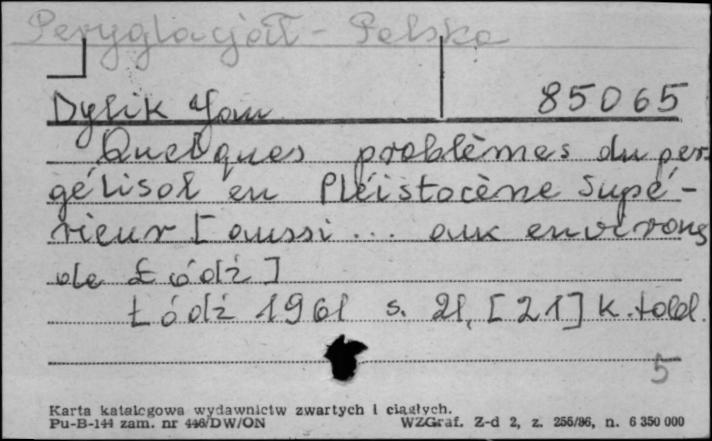 Peryglacjał - Polska
Dylik Jan 85065
Quelques problèmes du per-
gélisol en Pléistocène Supé-
rieur [aussi ... aux environs
de Łódź]
Łódź 1961 s. 21, [21] k. tabl.
5
Karta katalogowa wydawnictw zwartych i ciągłych.
Pu-B-144 zam. nr 446/DW/ON WZGraf. Z-d 2, z. 256/86, n. 6 350 000